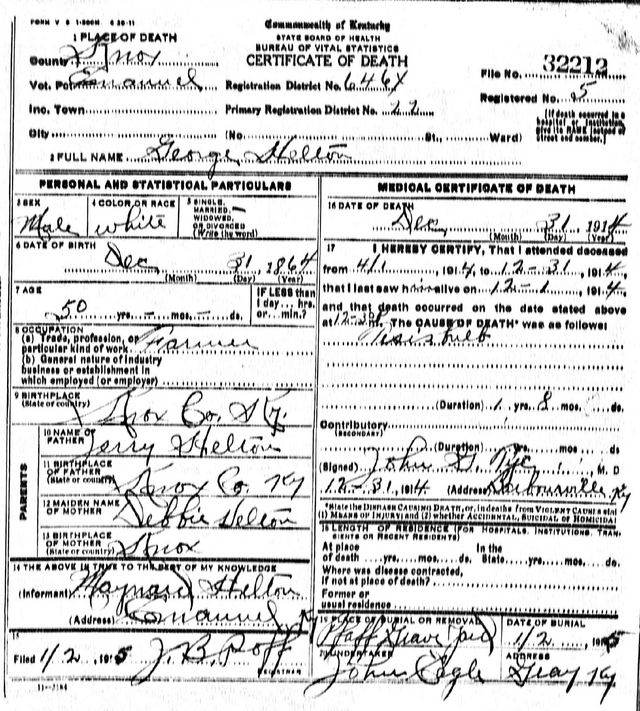 FORM V S 1-500M 6 20-11
Commonwealth of Kentucky
STATE BOARD OF HEALTH
BUREAU OF VITAL STATISTICS
CERTIFICATE OF DEATH
1 PLACE OF DEATH
County Knox
Vot. Pct. Emanuel
Inc. Town
City
Registration District No. 646X
Primary Registration District No. 22
(No. St., Ward)
File No. 32212
Registered No. 5
[If death occurred in a hospital or institution, give its NAME instead of street and number.]
2 FULL NAME George Helton
PERSONAL AND STATISTICAL PARTICULARS
3 SEX
Male
4 COLOR OR RACE
white
5 SINGLE, MARRIED, WIDOWED, OR DIVORCED (Write the word)
6 DATE OF BIRTH
Dec 31, 1864
(Month) (Day) (Year)
7 AGE
50 yrs. - mos. - ds.
IF LESS than 1 day... hrs. or... min.?
8 OCCUPATION
(a) Trade, profession, or particular kind of work Farmer
(b) General nature of industry business or establishment in which employed (or employer)
9 BIRTHPLACE
(State or country) Knox Co. Ky.
PARENTS
10 NAME OF FATHER Jerry Helton
11 BIRTHPLACE OF FATHER
(State or country) Knox Co. Ky
12 MAIDEN NAME OF MOTHER Debbie Helton
13 BIRTHPLACE OF MOTHER
(State or country) Knox
14 THE ABOVE IS TRUE TO THE BEST OF MY KNOWLEDGE
(Informant) Maynard Helton
(Address) Emanuel Ky
15
Filed 1/2 1915 J. B. Poff
REGISTRAR
MEDICAL CERTIFICATE OF DEATH
16 DATE OF DEATH
Dec 31 1914
(Month) (Day) (Year)
17 I HEREBY CERTIFY, That I attended deceased
from 4/1 1914, to 12-31, 1914,
that I last saw him alive on 12-1 1914,
and that death occurred on the date stated above
at 12-30 m. The CAUSE OF DEATH* was as follows:
(Duration) 1 yrs. 8 mos. ds.
Contributory
(SECONDARY)
(Duration) yrs. mos. ds.
(Signed) John G. Tye M. D
12-31, 1914 (Address) Barbourville Ky
*State the DISEASE CAUSING DEATH, or, in deaths from VIOLENT CAUSES state (1) MEANS OF INJURY; and (2) whether ACCIDENTAL, SUICIDAL OR HOMICIDAL
18 LENGTH OF RESIDENCE (FOR HOSPITALS, INSTITUTIONS, TRANSIENTS OR RECENT RESIDENTS)
At place of death yrs. mos. ds. In the State yrs. mos. ds.
Where was disease contracted, if not at place of death?
Former or usual residence
19 PLACE OF BURIAL OR REMOVAL
DATE OF BURIAL
1/2 1915
20 UNDERTAKER
John Cagle
ADDRESS
Gray Ky
11-7184